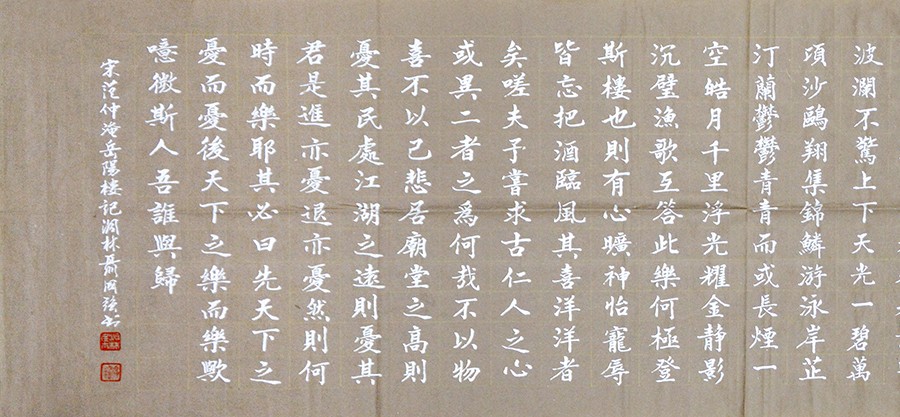 波瀾不驚上下天光一碧萬
頃沙鷗翔集錦鱗游泳岸芷
汀蘭鬱鬱青青而或長煙一
空皓月千里浮光耀金靜影
沉璧漁歌互答此樂何極登
斯樓也則有心曠神怡寵辱
皆忘把酒臨風其喜洋洋者
矣嗟夫予嘗求古仁人之心
或異二者之爲何哉不以物
喜不以己悲居廟堂之高則
憂其民處江湖之遠則憂其
君是進亦憂退亦憂然則何
時而樂耶其必曰先天下之
憂而憂後天下之樂而樂歟
噫微斯人吾誰與歸
宋范仲淹岳陽楼記